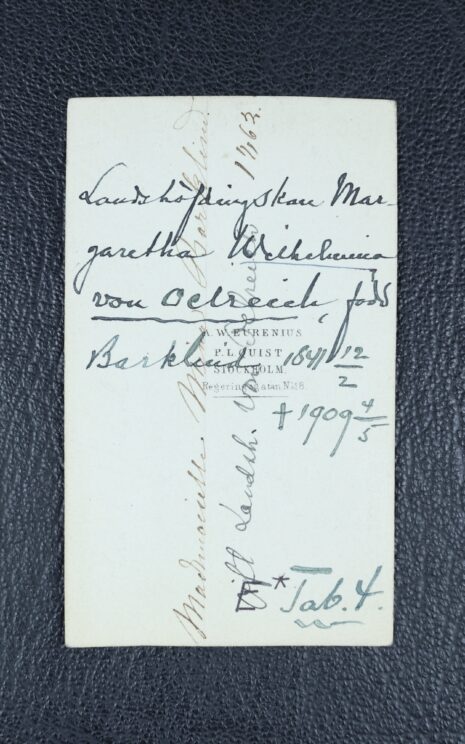 Landshöfdingskan Mar-
garetha Wilhelmina
von Oelreich, född
Barklind 1841 12/2
† 1909 4/5
A. W. EURENIUS
&
P. L. QUIST
STOCKHOLM.
Regeringsgatan No 18.
* Tab. 4.
Mademoiselle Barklind.
gift Landsh. von Oelreich 1863.